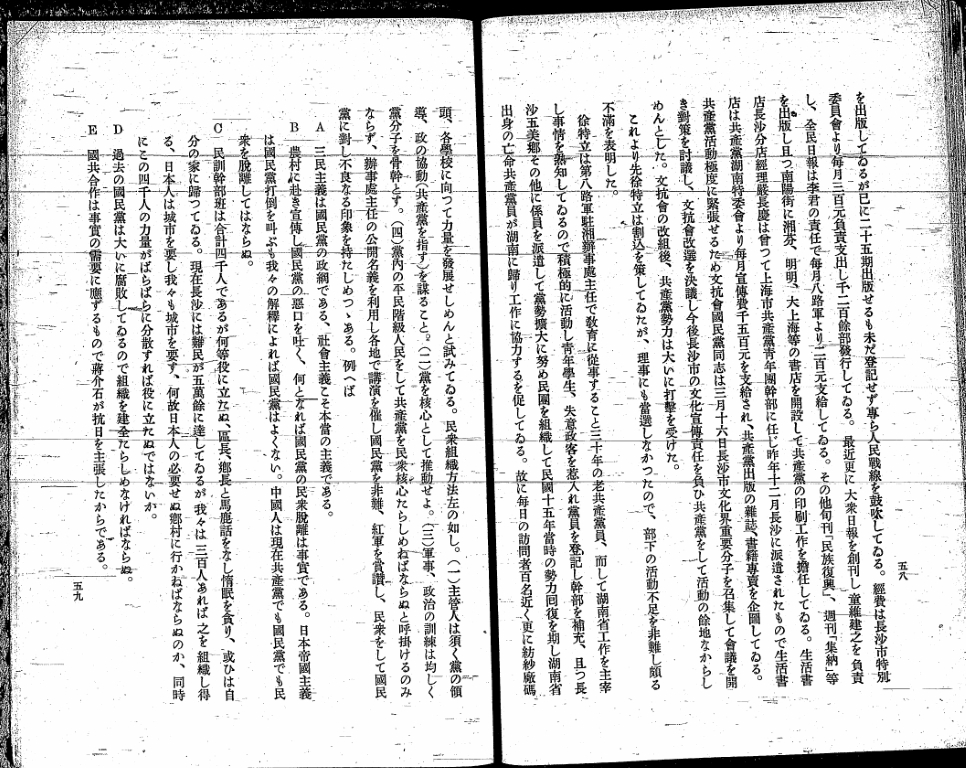 を出版してゐるが已に二十五期出版せるも未だ登記せず專ら人民戰線を鼓吹してゐる。經費は長沙市特別
委員會より每月三百元負責支出し千二百餘部發行してゐる。最近更に大衆日報を創刊し童維建之を負責
し、全民日報は李君の責任で每月八路軍より二百元支給してゐる。その他旬刊「民族復興」、週刊「集納」等
を出版し且つ南陽街に湘芬、明明、大上海等の書店を開設して共產黨の印刷工作を擔任してゐる。生活書
店長沙分店經理嚴長慶は曾つて上海市共產黨靑年團幹部に任じ昨年十二月長沙に派遣されたもので生活書
店は共產黨湖南特委會より每月宣傳費千五百元を支給され、共產黨出版の雜誌、書籍專賣を企圖してゐる。
共產黨活動極度に緊張せるため文抗會國民黨同志は三月十六日長沙市文化界重要分子を召集して會議を開
き對策を討議し、文抗會改選を決議し今後長沙市の文化宣傳責任を負ひ共產黨をして活動の餘地なからし
めんとした。文抗會の改組後、共產黨勢力は大いに打擊を受けた。
これより先徐特立は割込を策してゐたが、理事にも當選しなかつたので、部下の活動不足を非難し頗る
不滿を表明した。
徐特立は第八路軍駐湘辦事處主任で敎育に從事すること三十年の老共產黨員、而して湖南省工作を主宰
し事情を熟知してゐるので積極的に活動し靑年學生、失意政客を惹入れ黨員を登記し幹部を補充、且つ長
沙五美鄕その他に係員を派遣して黨勢擴大に努め民團を組織して民國十五年當時の勢力回復を期し湖南省
出身の亡命共產黨員が湖南に歸り工作に協力するを促してゐる。故に每日の訪問者百名近く更に紡紗廠碼
五八
頭、各學校に向つて力量を發展せしめんと試みてゐる。民衆組織方法左の如し。(一)主管人は須く黨の領
導、政の協動(共產黨を指す)を謀ること。(二)黨を核心として推動せよ。(三)軍事、政治の訓練は均しく
黨分子を骨幹とす。(四)黨內の不民階級人民をして共產黨を民衆核心たらしめねばならぬと呼掛けるのみ
ならず、辦事處主任の公開名義を利用し各地で講演を催し國民黨を非難、紅軍を賞讚し、民衆をして國民
黨に對し不良なる印象を持たしめつゝある。例へば
A 三民主義は國民黨の政綱である、社會主義こそ本當の主義である。
B 農村に赴き宣傳し國民黨の惡口を吐く、何となれば國民黨の民衆脫離は事實である。日本帝國主義
は國民黨打倒を叫ぶも我々の解釋によれば國民黨はよくない。中國人は現在共產黨でも國民黨でも民
衆を脫離してはならぬ。
C 民訓幹部班は合計四千人であるが何等役に立たぬ、區長、鄕長と馬鹿話をなし惰眠を貪り、或ひは自
分の家に歸つてゐる。現在長沙には難民が五萬餘に達してゐるが我々は三百人あれば之を組織し得
る、日本人は城市を要し我々も城市を要す、何故日本人の必要せぬ鄕村に行かねばならぬのか、同時
にこの四千人の力量がばらばらに分散すれば役に立たぬではないか。
D 過去の國民黨は大いに腐敗してゐるので組織を建全たらしめなければならぬ。
E 國共合作は事實の需要に應ずるもので蔣介石が抗日を主張したからである。
五九